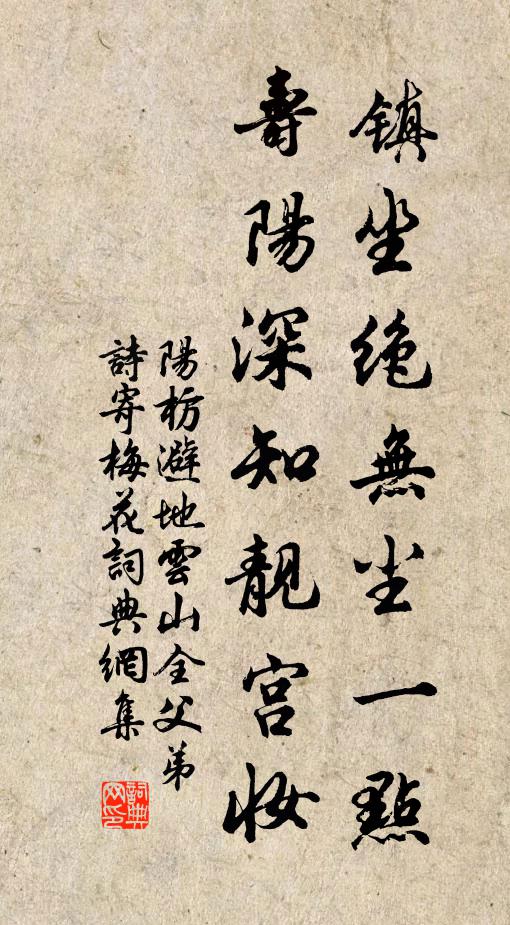 镇坐绝無尘一點
壽陽深知靚宫妝
陽枋避地雲山全父弟
詩寄梅花詞典網集
詞典
网印